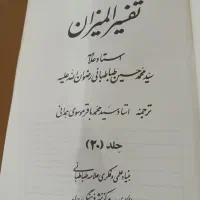 تفسیر المیزان
استاد علامه
سید محمد حسین طباطبائی رضوان الله علیه
ترجمه استاد سید محمد باقر موسوی همدانی
جلد (۲۰)
بنیاد علمی و فکری علامه طباطبائی